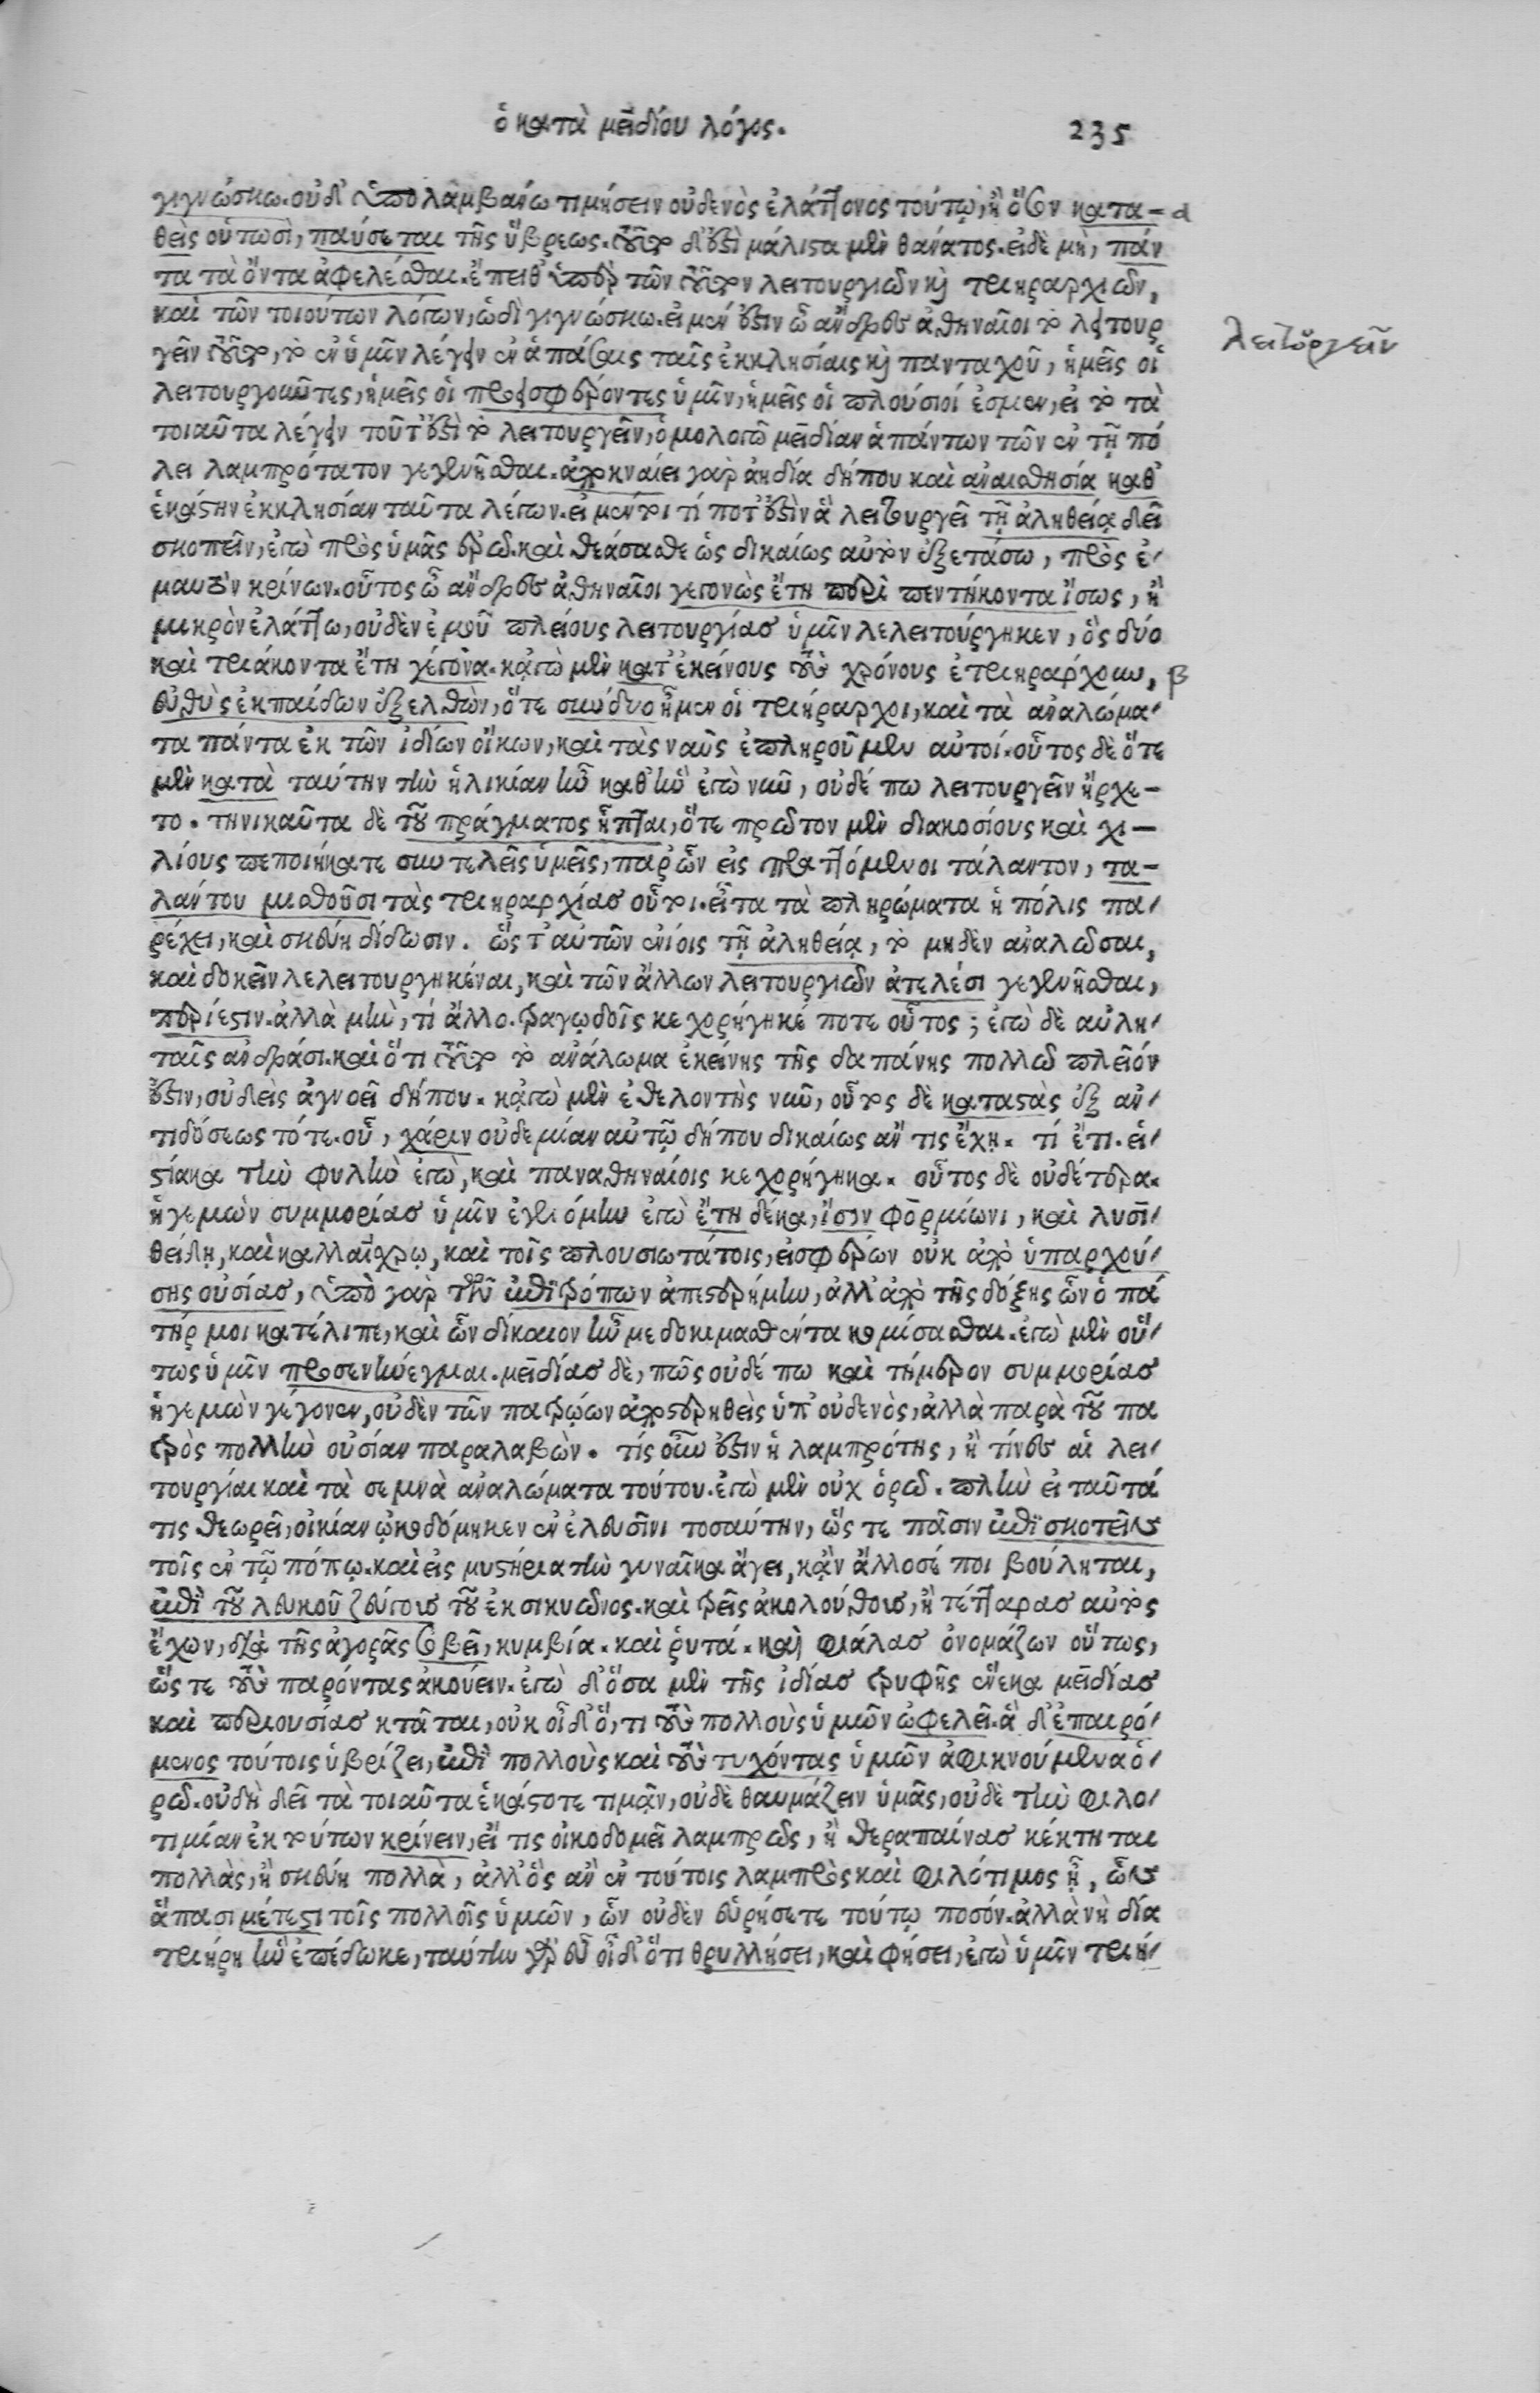 ὁ κατὰ μειδίου λόγος. 235
γιγνώσκω. οὐδ' ὑπολαμβάνω τιμήσειν οὐδενὸς ἐλάττονος τούτῳ, ἢ ὅσον κατα- α
θεὶς οὑτωσὶ, παύσεται τῆς ὕβρεως. τοῦτο δ' ἐστὶ μάλιστα μὲν θάνατος. εἰ δὲ μὴ, πάν
τα τὰ ὄντα ἀφελέσθαι. ἔπειθ' ὑπὲρ τῶν τούτων λειτουργιῶν καὶ τριηραρχιῶν,
καὶ τῶν τοιούτων λόγων, ὡδὶ γιγνώσκω. εἰ μέν ἐστιν ὦ ἄνδρες ἀθηναῖοι τὸ λειτουρ
γεῖν τοῦτο, τὸ ἐν ὑμῖν λέγειν ἐν ἁπάσαις ταῖς ἐκκλησίαις καὶ πανταχοῦ, ἡμεῖς οἱ
λειτουργεῖν
λειτουργοῦντες, ἡμεῖς οἱ προεισφέροντες ὑμῖν, ἡμεῖς οἱ πλούσιοί ἐσμεν, εἰ τὸ τὰ
τοιαῦτα λέγειν τοῦτ' ἐστὶ τὸ λειτουργεῖν, ὁμολογῶ μειδίαν ἁπάντων τῶν ἐν τῇ πό
λει λαμπρότατον γεγενῆσθαι. ἀποκναίει γὰρ ἀηδία δήπου καὶ ἀναισθησία καθ'
ἑκάστην ἐκκλησίαν ταῦτα λέγων. εἰ μέντοι τί ποτ' ἐστὶν ἃ λειτουργεῖ τῇ ἀληθείᾳ δεῖ
σκοπεῖν, ἐγὼ πρὸς ὑμᾶς ἐρῶ. καὶ θεάσασθε ὡς δικαίως αὐτὸν ἐξετάσω, πρὸς ἐ-
μαυτὸν κρίνων. οὗτος ὦ ἄνδρες ἀθηναῖοι γεγονὼς ἔτη περὶ πεντήκοντα ἴσως, ἢ
μικρὸν ἐλάττω, οὐδὲν ἐμοῦ πλείους λειτουργίας ὑμῖν λελειτούργηκεν, ὃς δύο
καὶ τριάκοντα ἔτη γέγονα. κἀγὼ μὲν κατ' ἐκείνους τοὺς χρόνους ἐτριηράρχουν, β
εὐθὺς ἐκ παίδων ἐξελθὼν, ὅτε σύνδυο ἦμεν οἱ τριήραρχοι, καὶ τὰ ἀναλώμα-
τα πάντα ἐκ τῶν ἰδίων οἴκων, καὶ τὰς ναῦς ἐπληροῦμεν αὐτοί. οὗτος δὲ ὅτε
μὲν κατὰ ταύτην τὴν ἡλικίαν ἦν καθ' ἣν ἐγὼ νῦν, οὐδέπω λειτουργεῖν ἤρχε-
το. τηνικαῦτα δὲ τοῦ πράγματος ἧπται, ὅτε πρῶτον μὲν διακοσίους καὶ χι-
λίους πεποιήκατε συντελεῖς ὑμεῖς, παρ' ὧν εἰσπραττόμενοι τάλαντον, τα-
λάντου μισθοῦσι τὰς τριηραρχίας οὗτοι. εἶτα τὰ πληρώματα ἡ πόλις πα-
ρέχει, καὶ σκεύη δίδωσιν. ὥστ' αὐτῶν ἐνίοις τῇ ἀληθείᾳ, τὸ μηδὲν ἀναλῶσαι,
καὶ δοκεῖν λελειτουργηκέναι, καὶ τῶν ἄλλων λειτουργιῶν ἀτελέσι γεγενῆσθαι,
περίεστιν. ἀλλὰ μὴν, τί ἄλλο. τραγῳδοῖς κεχορήγηκέ ποτε οὗτος; ἐγὼ δὲ αὐλη-
ταῖς ἀνδράσι. καὶ ὅτι τοῦτο τὸ ἀνάλωμα ἐκείνης τῆς δαπάνης πολλῷ πλεῖόν
ἐστιν, οὐδεὶς ἀγνοεῖ δήπου. κἀγὼ μὲν ἐθελοντὴς νῦν, οὗτος δὲ καταστὰς ἐξ ἀν-
τιδόσεως τότε. οὗ, χάριν οὐδεμίαν αὐτῷ δήπου δικαίως ἄν τις ἔχῃ. τί ἔτι. εἱ-
στίακα τὴν φυλὴν ἐγὼ, καὶ παναθηναίοις κεχορήγηκα. οὗτος δὲ οὐδέτερα.
ἡγεμὼν συμμορίας ὑμῖν ἐγενόμην ἐγὼ ἔτη δέκα, ἴσον φορμίωνι, καὶ λυσι-
θείδῃ, καὶ καλλαίσχρῳ, καὶ τοῖς πλουσιωτάτοις, εἰσφέρων οὐκ ἀπὸ ὑπαρχού-
σης οὐσίας, ὑπὸ γὰρ τῶν ἐπιτρόπων ἀπεστερήμην, ἀλλ' ἀπὸ τῆς δόξης ὧν ὁ πα
τήρ μοι κατέλιπε, καὶ ὧν δίκαιον ἦν με δοκιμασθέντα κομίσασθαι. ἐγὼ μὲν οὕ-
τως ὑμῖν προσενήνεγμαι. μειδίας δὲ, πῶς οὐδέπω καὶ τήμερον συμμορίας
ἡγεμὼν γέγονεν, οὐδὲν τῶν πατρῴων ἀποστερηθεὶς ὑπ' οὐδενὸς, ἀλλὰ παρὰ τοῦ πα
τρὸς πολλὴν οὐσίαν παραλαβών. τίς οὖν ἐστιν ἡ λαμπρότης, ἢ τίνες αἱ λει-
τουργίαι καὶ τὰ σεμνὰ ἀναλώματα τούτου. ἐγὼ μὲν οὐχ ὁρῶ. πλὴν εἰ ταῦτά
τις θεωρεῖ, οἰκίαν ᾠκοδόμηκεν ἐν ἐλευσῖνι τοσαύτην, ὥστε πᾶσιν ἐπισκοτεῖν
τοῖς ἐν τῷ τόπῳ. καὶ εἰς μυστήρια τὴν γυναῖκα ἄγει, κἂν ἄλλοσέ ποι βούληται,
ἐπὶ τοῦ λευκοῦ ζεύγους τοῦ ἐκ σικυῶνος. καὶ τρεῖς ἀκολούθους, ἢ τέτταρας αὐτὸς
ἔχων, διὰ τῆς ἀγορᾶς σοβεῖ, κυμβία. καὶ ῥυτά. καὶ φιάλας ὀνομάζων οὕτως,
ὥστε τοὺς παρόντας ἀκούειν. ἐγὼ δ' ὅσα μὲν τῆς ἰδίας τρυφῆς ἕνεκα μειδίας
καὶ περιουσίας κτᾶται, οὐκ οἶδ' ὅ,τι τοὺς πολλοὺς ὑμῶν ὠφελεῖ. ἃ δ' ἐπαιρό-
μενος τούτοις ὑβρίζει, ἐπὶ πολλοὺς καὶ τοὺς τυχόντας ὑμῶν ἀφικνούμενα ὁ-
ρῶ. οὐδὴ δεῖ τὰ τοιαῦτα ἑκάστοτε τιμᾷν, οὐδὲ θαυμάζειν ὑμᾶς, οὐδὲ τὴν φιλο-
τιμίαν ἐκ τούτων κρίνειν, εἴ τις οἰκοδομεῖ λαμπρῶς, ἢ θεραπαίνας κέκτηται
πολλὰς, ἢ σκεύη πολλὰ, ἀλλ' ὃς ἂν ἐν τούτοις λαμπρὸς καὶ φιλότιμος ᾖ, ὧν
ἅπασι μέτεστι τοῖς πολλοῖς ὑμῶν, ὧν οὐδὲν εὑρήσετε τούτῳ ποσόν. ἀλλὰ νὴ δία
τριήρη ἣν ἐπέδωκε, ταύτην γὰρ εὖ οἶδ' ὅτι θρυλλήσει, καὶ φήσει, ἐγὼ ὑμῖν τριή-